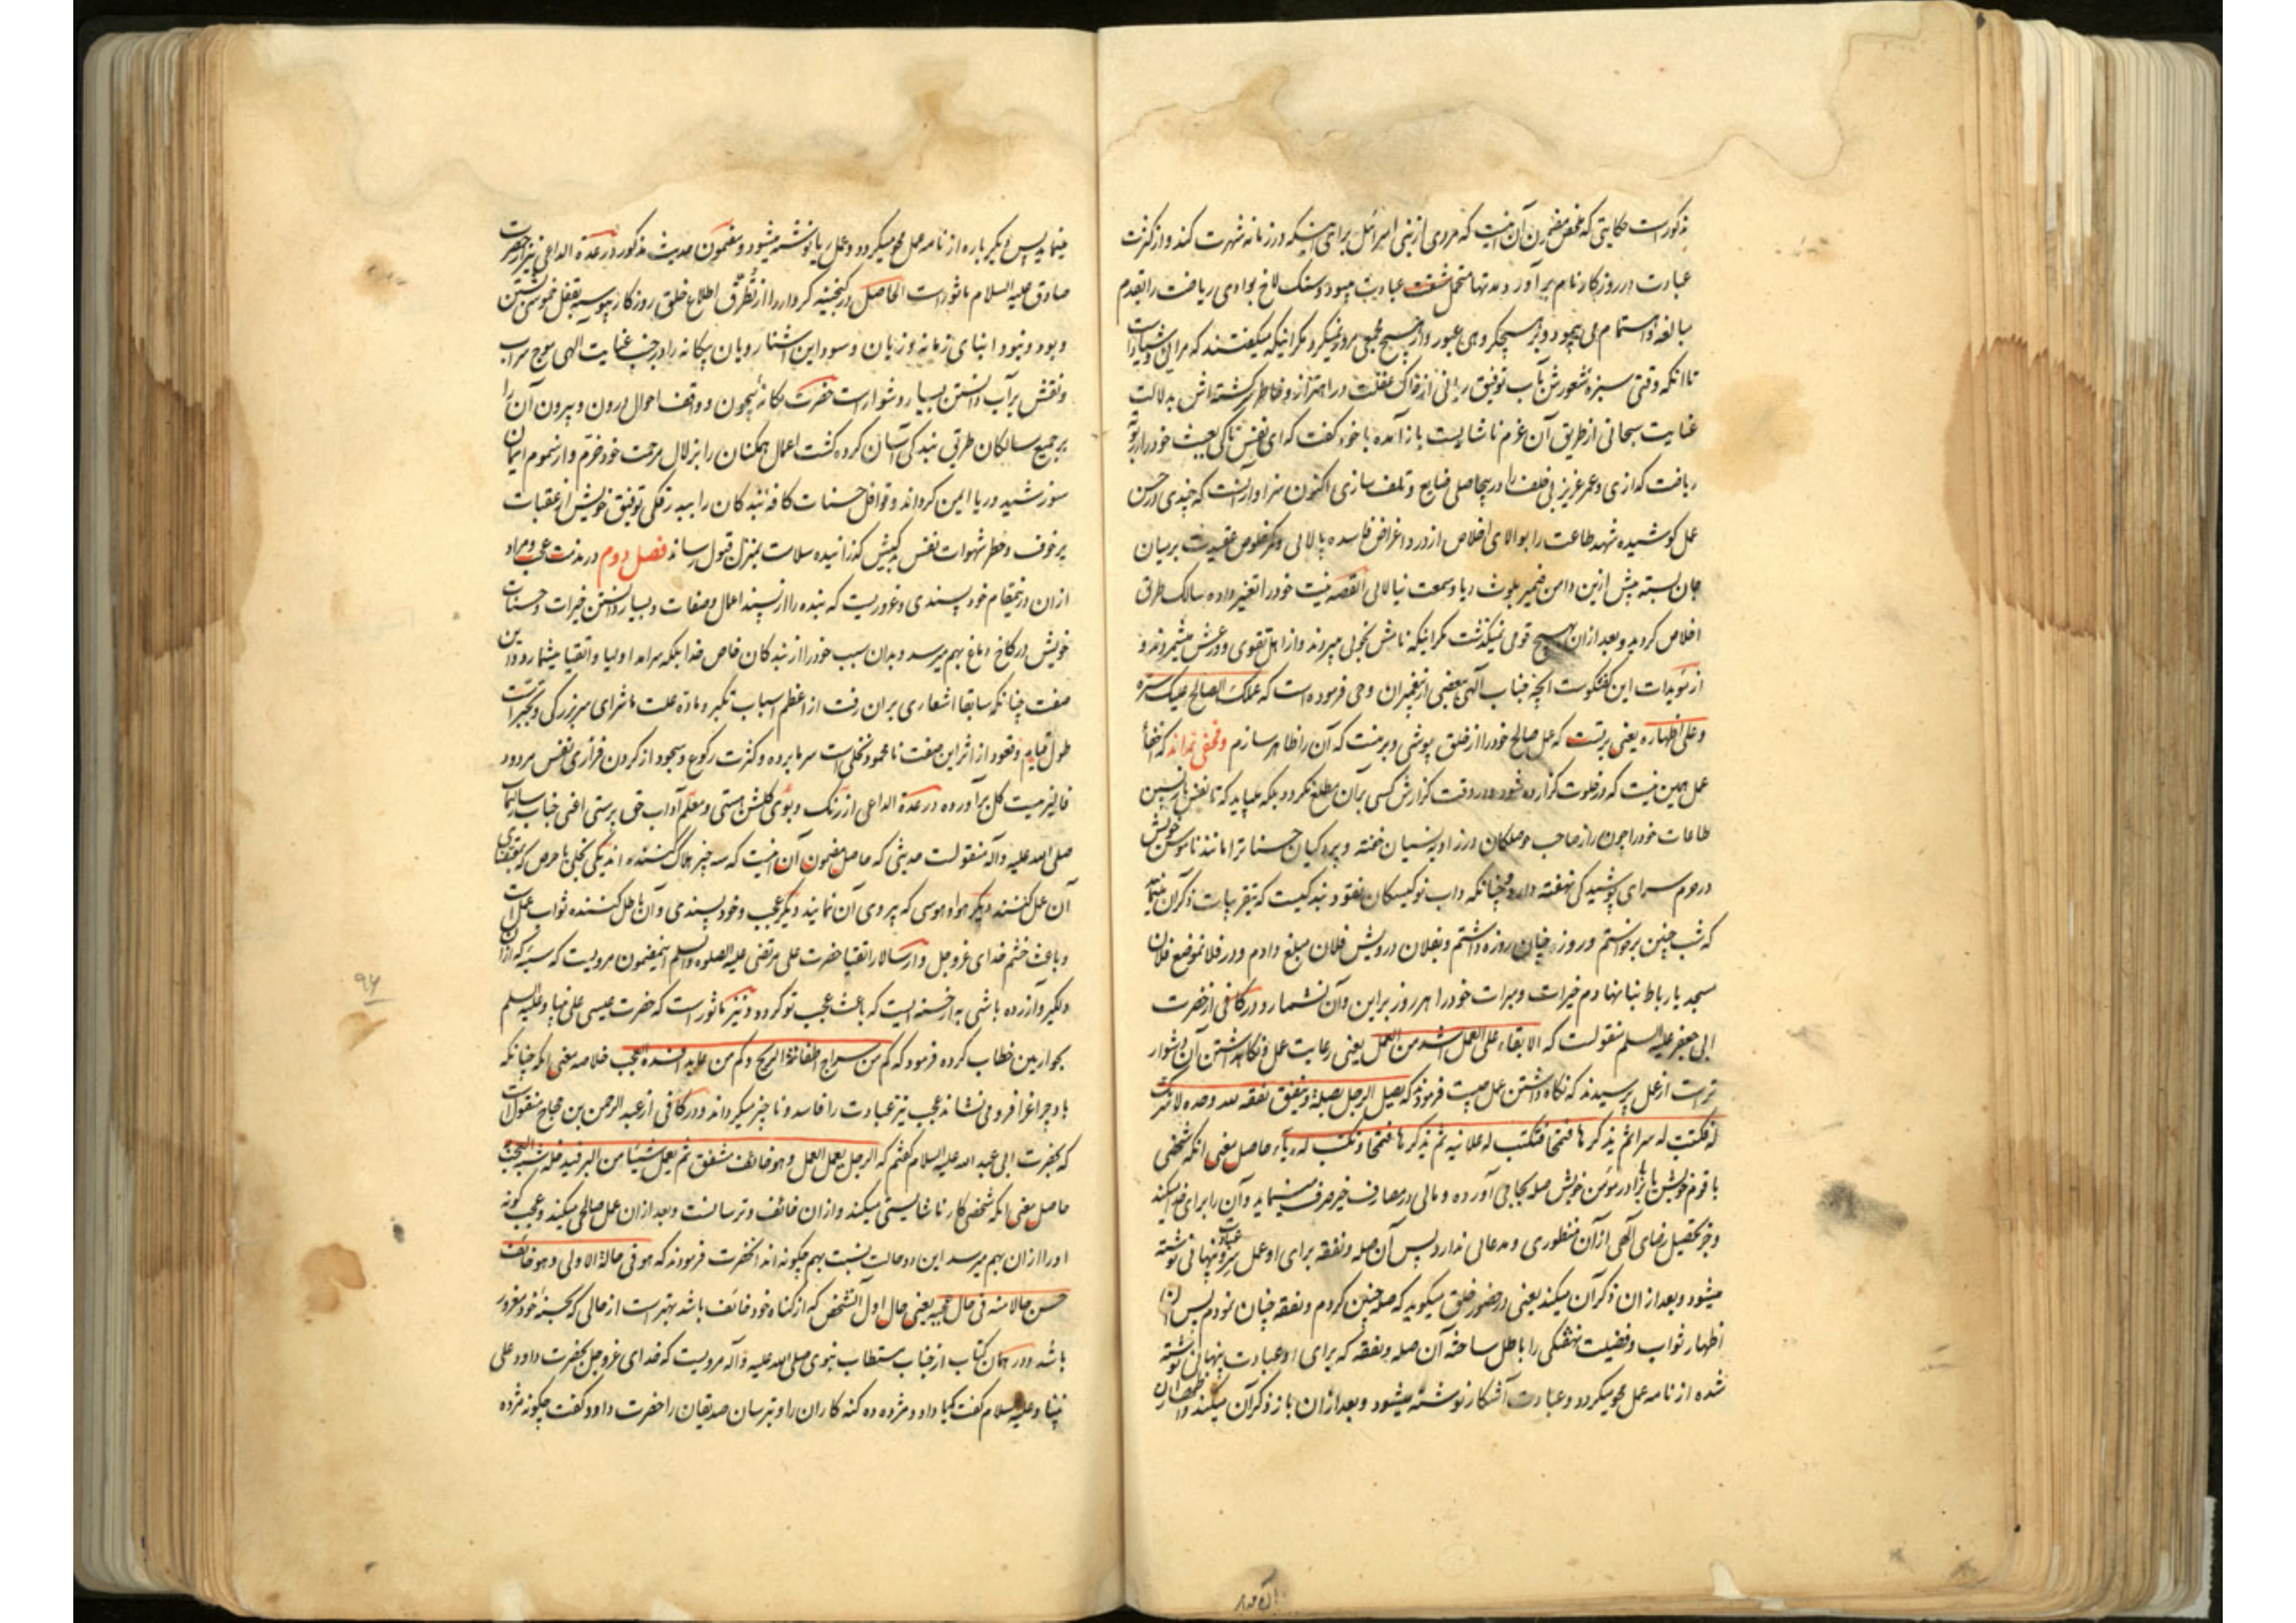 مذکورست حکایتی که ملخص مضمون آن اینست که مردی از بنی اسرائیل برای اینکه در زمانه شهرت کند و از کثرت
عبادت در روزگار نام برآورد مدتها متحمل مشقت عبادت میبود و سنگ لاخ بوادی ریاضت را بقدم
مبالغه و اهتمام می پیمود و بر هیچ گروهی عبور و از هیچ مجمعی مرور نمیکرد مگر اینکه میگفتند که مرائی
تا آنکه وقتی سبزه شعورش بآب توفیق ربانی از خاک غفلت در اهتزاز و خاطر سرگشته اش بدلالت
عنایت سبحانی از طریق آن عزم ناشایست باز آمده با خود گفت که ای نفس تا کی بعبث خود را در بوته
ریاضت گدازی و عمر عزیز بی خلف را در بیحاصلی ضایع و تلف سازی اکنون سزاوار آنست که چندی در حسن
عمل کوشیده شهد طاعت را بوالای اخلاص از درد اغراض فاسده پالائی و کمر خلوص عقیدت بر میان
جان بسته بیش ازین دامن ضمیر بلوث ریا و سمعت نیالائی القصه نیت خود را تغییر داده سالک طریق
اخلاص گردید و بعد از آن بهیچ قومی نمیگذشت مگر اینکه نامش بخوبی میبردند و از اهل تقوی و ورعش میشمردند و
از مؤیدات این گفتگوست آنچه جناب آلهی ببعضی از پیغمبران وحی فرموده است که عملک الصالح علیک ستره
و علی اظهاره یعنی بر تست که عمل صالح خود را از خلق پوشی و بر منست که آن را ظاهر سازم و مخفی نماند که اخفاء
عمل همین نیست که در خلوت گزارده شود و در وقت گزارش کسی بر آن مطلع نگردد بلکه میباید که تا نفس بازپسین
طاعات خود را چون راز صاحب حوصلگان در زاویه نسیان خفته و پردگیان حسنات را مانند ناموس خویش
در حرم سرای پوشیدگی نهفته دارد و چنانکه داب نوکیسگان نقود بندگیست که بتقریبات ذکر آن نمایند
که شب چنین برخواستم و روز چنان روزه داشتم و بفلان درویش فلان مبلغ دادم و در فلان موضع فلان
مسجد یا رباط بنا نهادم خیرات و مبرات خود را هر روز بر این و آن نشمارد و در کافی از حضرت
ابی جعفر علیه السلم منقولست که الابقاء علی العمل اشد من العمل یعنی رعایت عمل و نگاهداشتن آن دشوار
ترست از عمل پرسیدند که نگاه داشتن عمل چیست فرمودند که یصل الرجل بصلة و ینفق نفقه لله وحده لا شریک
له فکتبت له سرا ثم یذکرها فتمحا فتکتب له علانیه ثم یذکرها فتمحا و تکتب له ریاء حاصل معنی آنکه شخصی
با قوم خویش یا برادر مؤمن خویش صله بجا می آورده و مالی در مصارف خیر صرف مینماید و آن را برای خدا میکند
و جز تحصیل رضای آلهی از آن منظوری و مدعائی ندارد پس آن صله و نفقه برای او عمل سر و عبادت نهانی نوشته
میشود و بعد از ان ذکر آن میکند یعنی در حضور خلق میگوید که صله چنین کردم و نفقه چنان نمودم پس این
اظهار ثواب و فضیلت نهفتگی را باطل ساخته آن صله و نفقه که برای او عبادت پنهانی نوشته
شده از نامه عمل محو میگردد و عبادت آشکار نوشته میشود و بعد از ان باز ذکر آن میکند و اظهار آن
مینماید پس دیگر باره از نامه عمل محو میگردد و عمل ریا نوشته میشود و مضمون حدیث مذکور در عدة الداعی نیز از حضرت
صادق علیه السلام ماثورست الحاصل در گنجینه کردار را از تطرق اطلاع خلق روزگار پیوسته بقفل خموشی بستن
و بود و نبود ابنای زمانه و زیان و سود این آشنا رویان بیگانه را در جنب عنایت الهی موج سراب
و نقش بر آب دانستن بسیار دشوارست حضرت یگانه بیچون و واقف احوال درون و بیرون آن را
بر جمیع سالکان طریق بندگی آسان کرده کشت اعمال همگنان را بزلال مرحمت خود خرم و از سموم ایمان
سوز شید و ریا ایمن گرداند و قوافل حسنات کافه بندگان را ببدرقگی توفیق خویش از عقبات
پر خوف و خطر شهوات نفس بدکیش گذرانیده سلامت بمنزل قبول رساند فصل دوم در مذمت عجب و مراد
از ان درینمقام خود پسندی و غروریست که بنده را از پسند اعمال و صفات و بسیار دانستن خیرات و حسنات
خویش در کاخ دماغ بهم میرسد و بدان سبب خود را از بندگان خاص خدا بلکه سرآمد اولیا و اتقیا میشمارد و این
صفت چنانکه سابقا اشعاری بران رفت از اعظم اسباب تکبر و ماده علت ماشرای سر بزرگی و تجبرست
طول قیام و قعود از اثر این صفت نامحمود نخلیست سرما برده و کثرت رکوع و سجود از گردن فرازی نفس مردود
فالیزیست گل بر آورده در عدة الداعی از رنگ و بوی گلشن هستی و معلم آداب حق پرستی اعنی جناب رسالتمآب
صلی الله علیه و آله منقولست حدیثی که حاصل مضمون آن اینست که سه چیز هلاک کننده اند یکی بخلی یا حرص که بمقتضای
آن عمل کنند دیگر هوا و هوسی که پیروی آن نمایند دیگر عجب و خود پسندی و آن باطل کننده ثواب عمل است
و باعث خشم خدای عزوجل و از سالار اتقیا حضرت علی مرتضی علیه الصلوه والسلم اینمضمون مرویست که سیئه که از آن
دلگیر و آزرده باشی به از حسنه ایست که باعث عجب تو گردد و نیز ماثورست که حضرت عیسی علی نبینا و علیه السلم
بحواریین خطاب کرده فرمود که کم من سراج اطفاته الریح و کم من عابد افسده العجب خلاصه معنی آنکه چنانکه
باد چراغ را فرو می نشاند عجب نیز عبادت را فاسد و ناچیز میگرداند و در کافی از عبد الرحمن بن حجاج منقولست
که بحضرت ابی عبد الله علیه السلام گفتم که الرجل یعمل العمل و هو خائف مشفق ثم یعمل شیئا من البر فیدخله شبه العجب
حاصل معنی آنکه شخصی کار ناشایستی میکند و از ان خائف و ترسانست و بعد از ان عمل صالحی میکند و عجب گونه
او را از ان بهم میرسد این دو حالت نسبت بهم چگونه اند آنحضرت فرمودند که هو فی حالة الاولی و هو خائف
حسن حالا منه فی حال عجبه یعنی حال اول آنشخص که از گناه خود خائف باشد بهترست از حالی که بحسنه خود مغرور
باشد و در همان کتاب از جناب مستطاب نبوی صلی الله علیه و آله مرویست که خدای عزوجل بحضرت داود علی
نبینا و علیه السلام گفت که یا داود مژده ده گنه کاران را و بترسان صدیقان را حضرت داود گفت چگونه مژده
۹۴